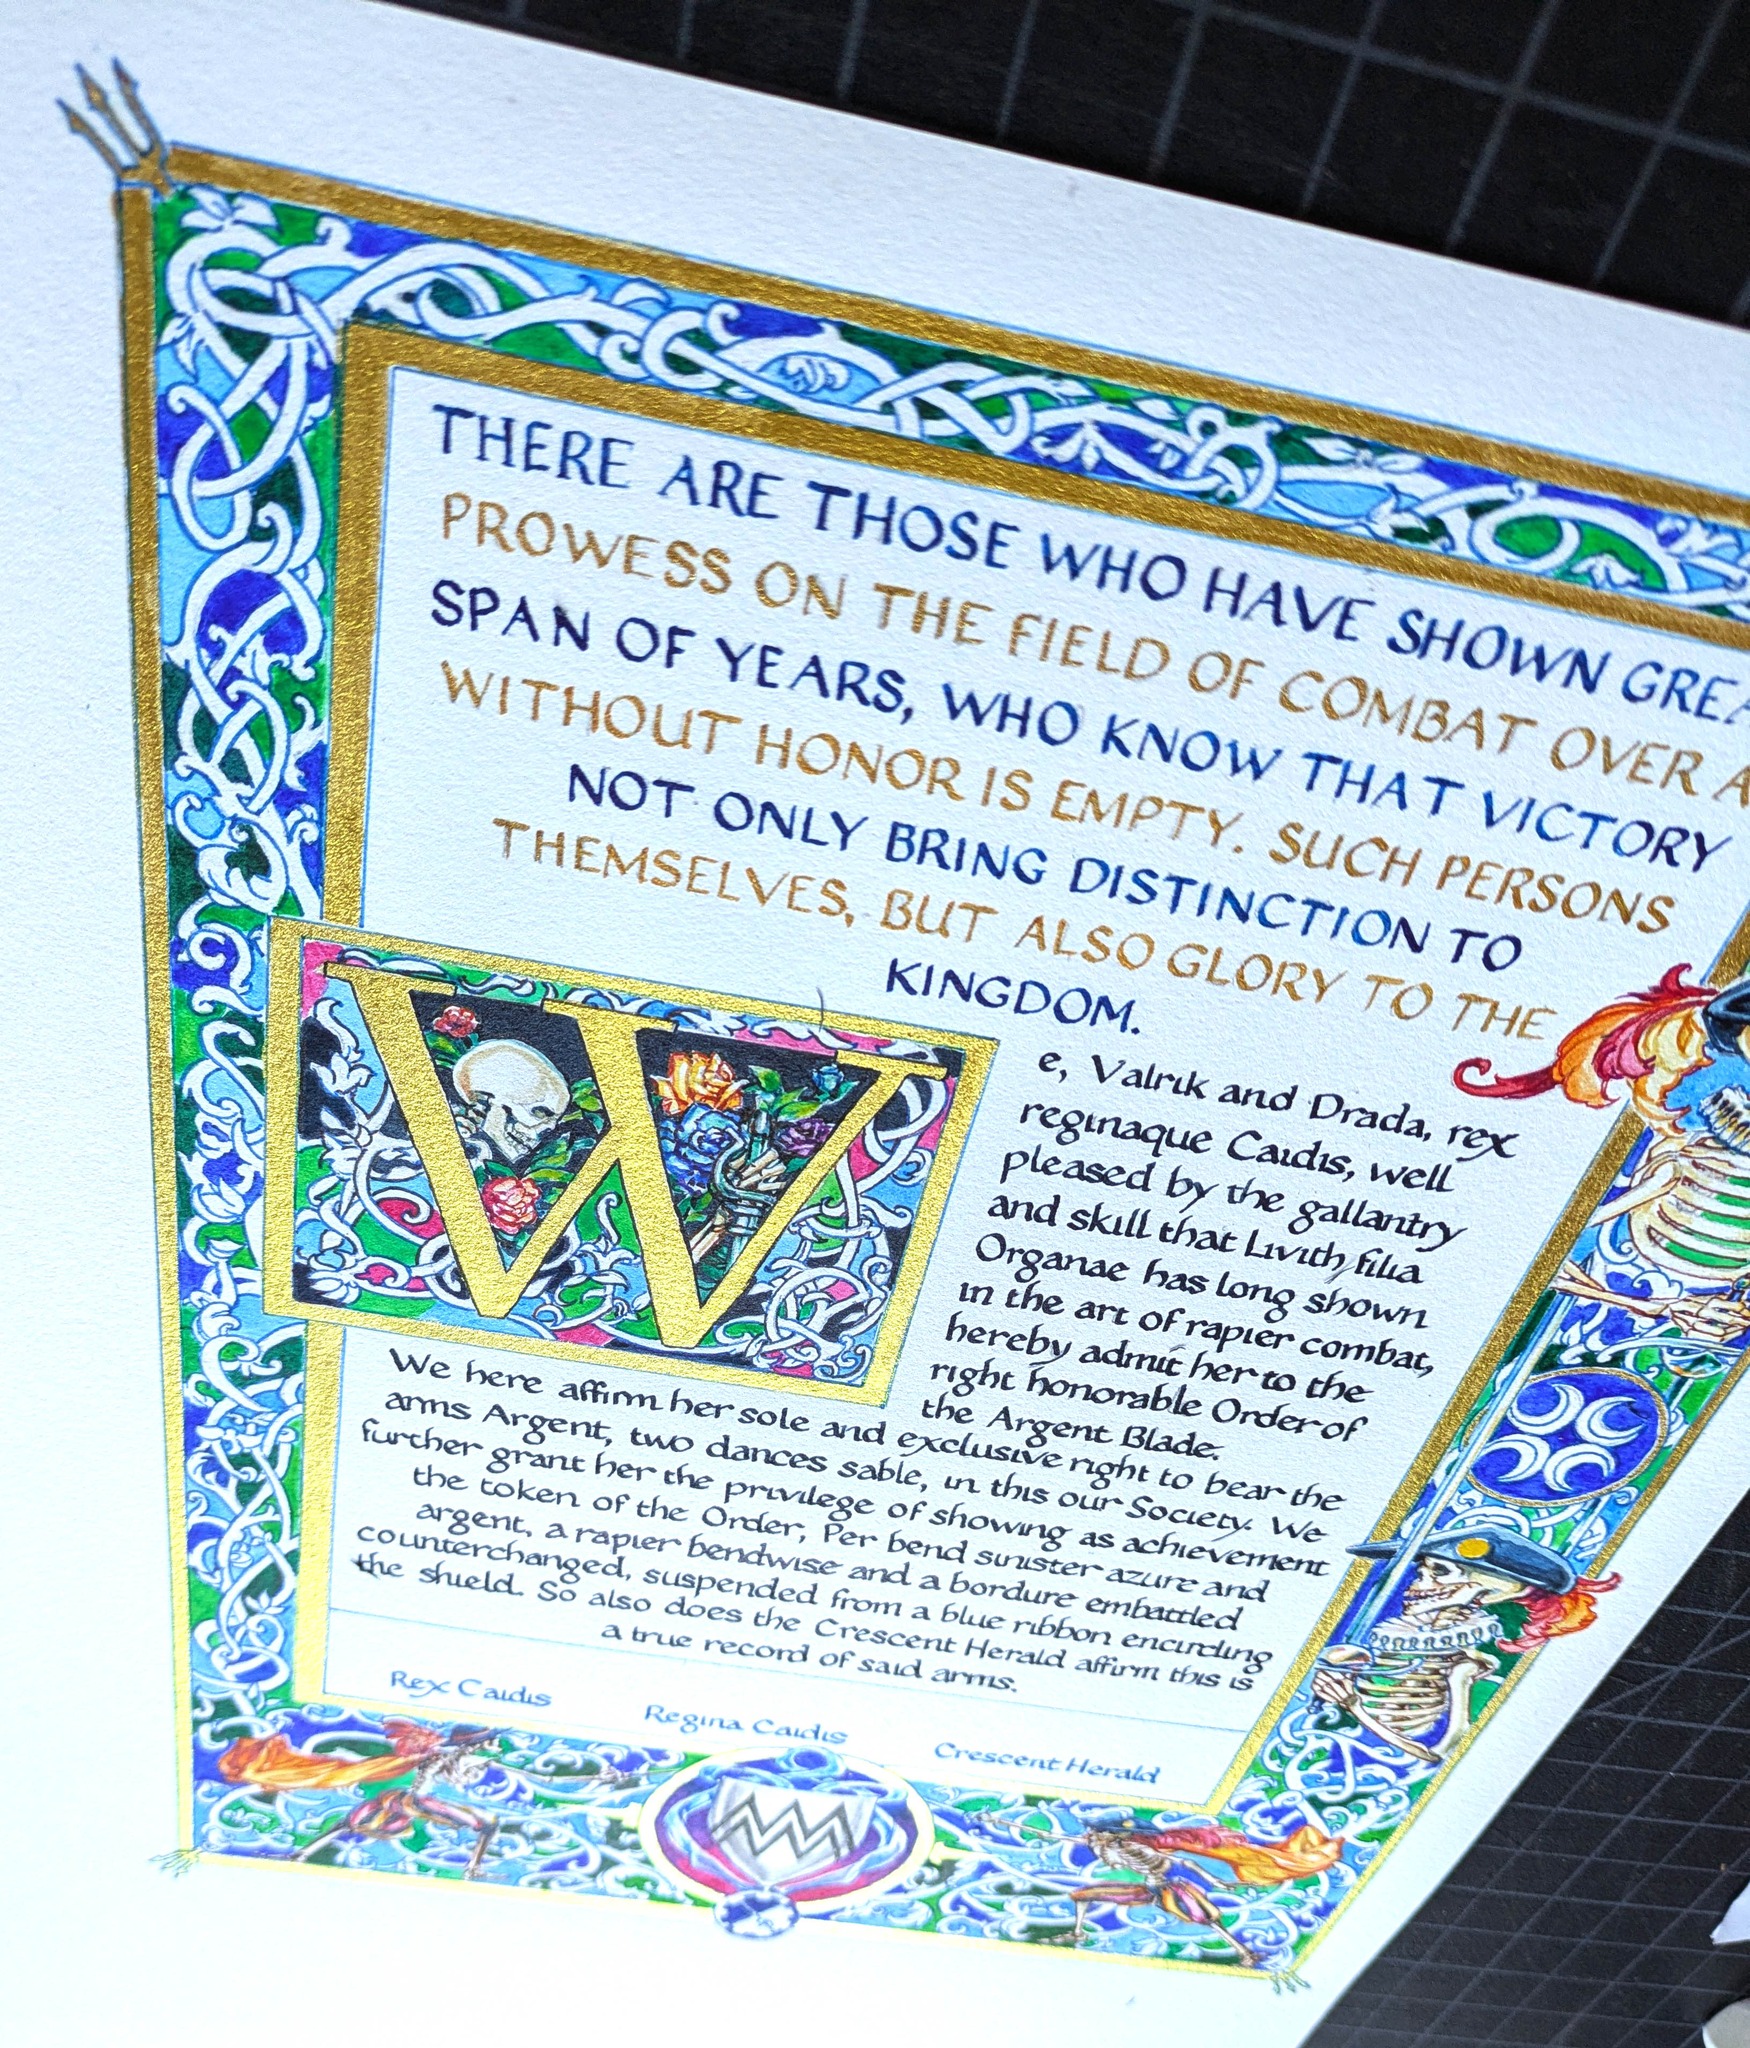 THERE ARE THOSE WHO HAVE SHOWN GREA
PROWESS ON THE FIELD OF COMBAT OVER A
SPAN OF YEARS, WHO KNOW THAT VICTORY
WITHOUT HONOR IS EMPTY. SUCH PERSONS
NOT ONLY BRING DISTINCTION TO
THEMSELVES, BUT ALSO GLORY TO THE
KINGDOM.
We, Valrik and Drada, rex
reginaque Caidis, well
pleased by the gallantry
and skill that Livith filia
Organae has long shown
in the art of rapier combat,
hereby admit her to the
right honorable Order of
the Argent Blade.
We here affirm her sole and exclusive right to bear the
arms Argent, two dances sable, in this our Society. We
further grant her the privilege of showing as achievement
the token of the Order, Per bend sinister azure and
argent, a rapier bendwise and a bordure embattled
counterchanged, suspended from a blue ribbon encircling
the shield. So also does the Crescent Herald affirm this is
a true record of said arms.
Rex Caidis
Regina Caidis
Crescent Herald